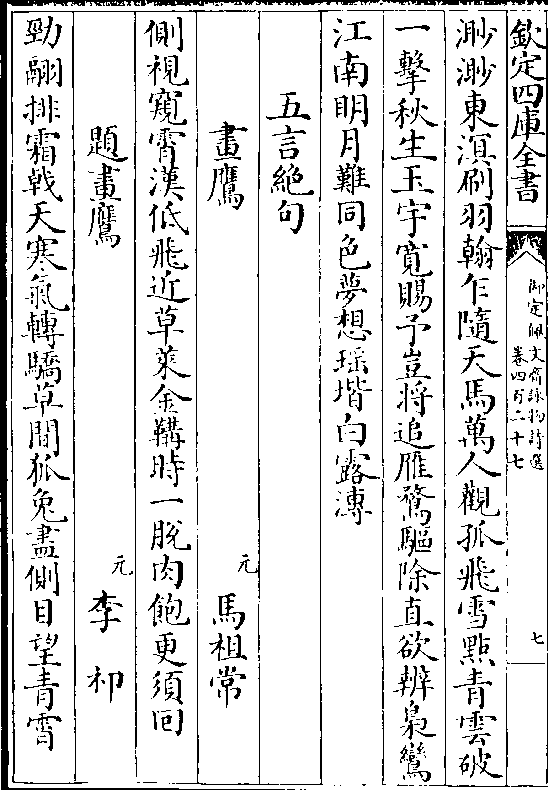 欽定四庫全書
御定佩文齋詠物詩選
卷四百二十七
七
渺渺東溟刷羽翰乍隨天馬萬人觀孤飛雪點青雲破
一擊秋生玉宇寛賜予豈將追雁鶩驅除直欲辨梟鸞
江南明月難同色夢想瑶堦白露漙
五言絶句
畫鷹
元
馬祖常
側視窺霄漢低飛近草萊金鞲時一脱肉飽更須回
題畫鷹
元
李祁
勁翮排霜戟天寒氣轉驕草間狐兔盡側目望青霄